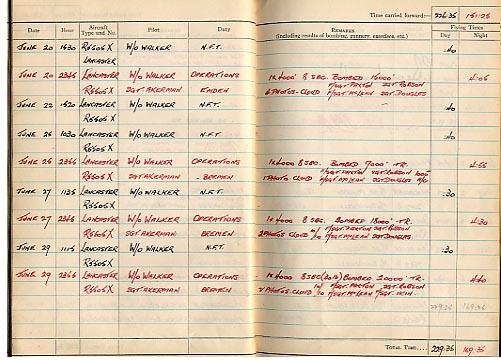 Time carried forward:— 226·35 151·25
Date Hour Aircraft Type and No. Pilot Duty REMARKS (including results of bombing, gunnery, exercises, etc.) Flying Times Day Night
JUNE 20 1630 R5505 X W/O WALKER N.F.T. ·40
LANCASTER
JUNE 20 2345 LANCASTER W/O WALKER OPERATIONS 1x4000' 8 SEC. BOMBED 15000' 4·05
R5505 X SGT AKERMAN EMDEN 6 PHOTOS. F/SGT PAXTON SGT ROBSON F/SGT McLEAN SGT DOUGLES
JUNE 22 1520 LANCASTER W/O WALKER N.F.T. ·40
R5505 X
JUNE 25 1030 LANCASTER W/O WALKER N.F.T. ·40
R5505 X
JUNE 25 2355 LANCASTER W/O WALKER OPERATIONS 1x4000 8 SEC. BOMBED 9000' T.R. 4·55
R5505 X SGT AKERMAN - BREMEN 1 PHOTO CLOUD F/SGT PAXTON SGT ROBSON F/SGT McLEAN SGT DOUGLES
JUNE 27 1135 LANCASTER W/O WALKER N.F.T. ·30
R5505 X
JUNE 27 2345 LANCASTER W/O WALKER OPERATIONS 1x4000 8 SEC. BOMBED 18000' T.R. 4·30
R5505 X SGT AKERMAN BREMEN 2 PHOTOS CLOUD F/SGT PAXTON SGT ROBSON F/SGT McLEAN SGT DOUGLAS
JUNE 29 1115 LANCASTER W/O WALKER N.F.T. ·30
R5505 X
JUNE 29 2355 LANCASTER W/O WALKER OPERATIONS 1x4000 8 SEC BOMBED 20000' T.R. 4·40
R5505 X SGT AKERMAN BREMEN PHOTOS. CLOUD F/SGT PAXTON SGT ROBSON F/SGT McLEAN
229·35 169·35
TOTAL TIME.... 229·35 169·35